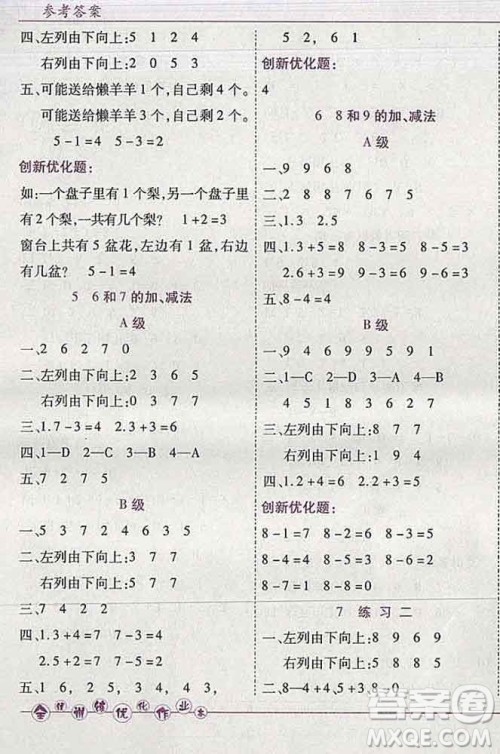 参考答案
四、左列由下向上:5 1 2 4
右列由下向上:2 0 5 3
五、可能送给懒羊羊1个,自己剩4个。
可能送给懒羊羊3个,自己剩2个。
5-1=4 5-3=2
创新优化题:
如:一个盘子里有1个梨,另一个盘子里
有2个梨,一共有几个梨? 1+2=3
窗台上共有5盆花,左边有1盆,右边
有几盆? 5-1=4
5 6和7的加、减法
A级
一、2 6 2 7 0
二、左列由下向上:2 3 6 5
右列由下向上:0 7 7 7
三、1.7-3=4 2.3+4=7
四、1—D 2—C 3—B 4—A
五、7 2 7 5
B级
一、5 3 7 2 4 6 3 5
二、左列由下向上:3 7 7
右列由下向上:5 7 7
三、7 4 2 2
四、1.3+4=7 7-3=4
2.5+2=7 7-5=2
五、1 6, 2 5, 3 4, 4 3,
全 训 练 优 化 作 业 本
5 2, 6 1
创新优化题:
4
6 8和9的加、减法
A级
一、9 9 6 8
二、2 8 8 7 6 7 5
三、1.3 2.5
四、1.3+5=8 8-3=5 8-5=3
2.6+3=9 9-3=6 9-6=3
五、8-4=4
B级
一、9 4 6 9 9 9 5 9 1
二、1—C 2—D 3—A 4—B
三、左列由下向上:8 7 9
右列由下向上:8 8 7
四、1.2 2.4+5=9
创新优化题:
8-1=7 8-2=6 8-3=5
8-4=4 8-5=3 8-6=2
8-7=1 8-8=0
练 习 二
一、左列由下向上:8 9 6 9
右列由下向上:8 9 9 9
二、8-4=4 8-8=0 9-0=9
作业答案圈
MXQE.COM